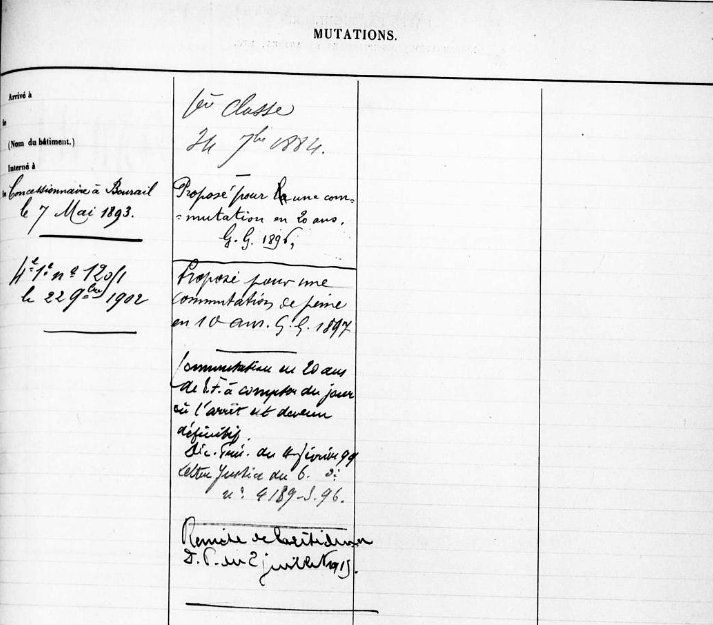 MUTATIONS.
Arrivé à
le
(Nom du bâtiment.)
Interné à
le Concessionnaire à Bourail
le 7 Mai 1893.
4e 1e no 120/1
le 22 9bre 1902
1ère Classe
24 7bre 1884.
Proposé pour une com-
=mutation en 20 ans.
G. G. 1896,
Proposé pour une
commutation de peine
en 10 ans. G. G. 1897
Commutation en 20 ans
de T.f. à compter du jour
où l'arrêt est devenu
définitif.
Déc. Prés. du 4 février 99
lettre Justice du 6. d:
n: 4189-S.96.
Remise de
D. P. du 2 juillet 1915.